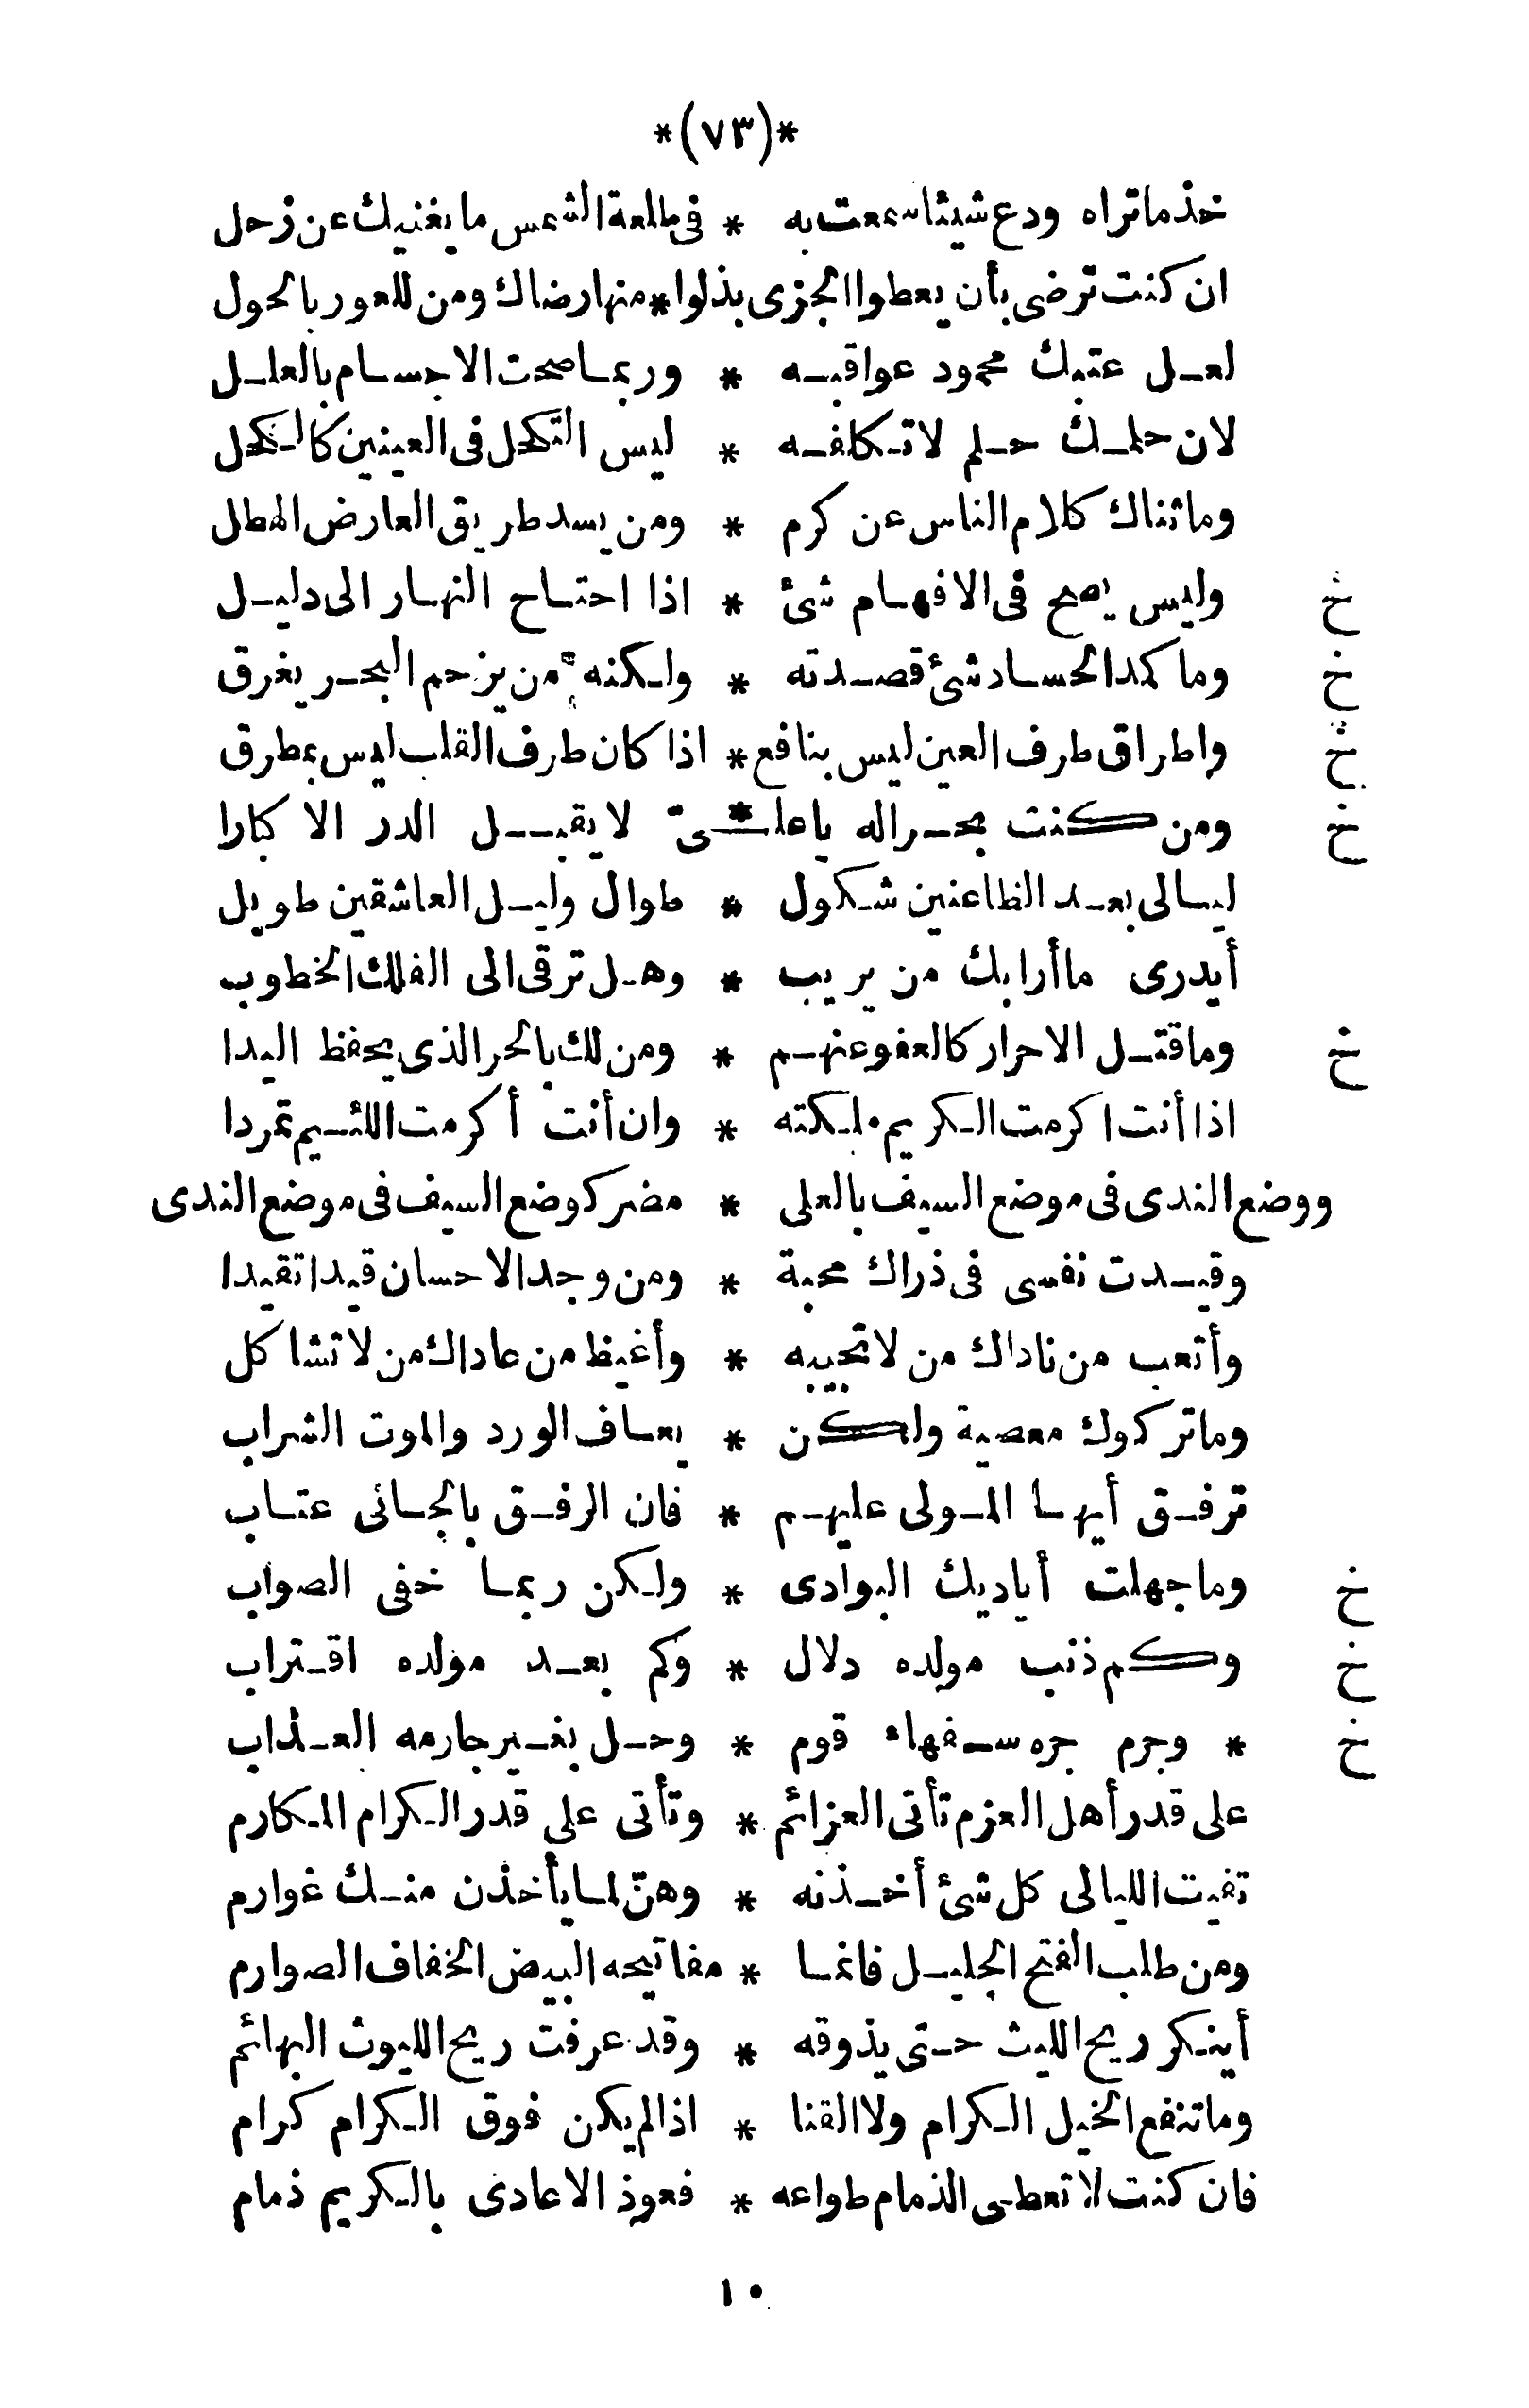 *(٧٣)*
خذ ماتراه ودع شيئا سمعت به * فى طلعة الشمس ما يغنيك عن زحل
ان كنت ترضى بأن يعطوا الجزى بذلوا * منها رضاك ومن للعور بالحول
لعل عتبك محمود عواقبه * وربما صحت الاجسام بالعلل
لان حلمك حلم لا تكلفه * ليس التكحل فى العينين كالكحل
وما ثناك كلام الناس عن كرم * ومن يسد طريق العارض الهطل
خ وليس يصح فى الافهام شئ * اذا احتاح النهار الى دليل
خ وما كمد الحساد شئ قصدته * ولكنه من يزحم البحر يغرق
خ واطراق طرف العين ليس بنافع * اذا كان طرف القلب ليس بمطرق
خ ومن كنت بحرا له يا علىّ * لا يقبل الدر الا كبارا
ليالى بعد الظاعنين شكول * طوال وليل العاشقين طويل
أيدرى ما أرابك من يريب * وهل ترقى الى الفلك الخطوب
خ وما قتل الاحرار كالعفو عنهم * ومن لك بالحر الذى يحفظ اليدا
اذا أنت اكرمت الكريم ملكته * وان أنت أكرمت اللئيم تمردا
ووضع الندى فى موضع السيف بالعلى * مضر كوضع السيف فى موضع الندى
وقيدت نفسى فى ذراك محبة * ومن وجد الاحسان قيدا تقيدا
وأتعب من ناداك من لا تجيبه * وأغيظ من عاداك من لا تشاكل
وما تركوك معصية ولكن * يعاف الورد والموت الشراب
ترفق أيها المولى عليهم * فان الرفق بالجانى عتاب
خ وما جهلت أياديك البوادى * ولكن ربما خفى الصواب
خ وكم ذنب مولده دلال * وكم بعد مولده اقتراب
خ * وجرم جره سفهاء قوم * وحل بغير جارمه العذاب
على قدر أهل العزم تأتى العزائم * وتأتى على قدر الكرام المكارم
تفيت الليالى كل شئ أخذنه * وهنّ لما يأخذن منك غوارم
ومن طلب الفتح الجليل فانما * مفاتيحه البيض الخفاف الصوارم
أينكر ريح الليث حتى يذوقه * وقد عرفت ريح الليوث البهائم
وما تنفع الخيل الكرام ولا القنا * اذا لم يكن فوق الكرام كرام
فان كنت لا تعطى الذمام طواعه * فعوذ الاعادى بالكريم ذمام
١٠